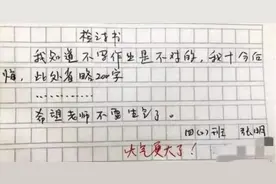 检讨书
我知道不写作业是不对的，我十分后
悔，此处省略200字
…………
希望老师不要生气了。
四(2)班 张明
火气更大了！